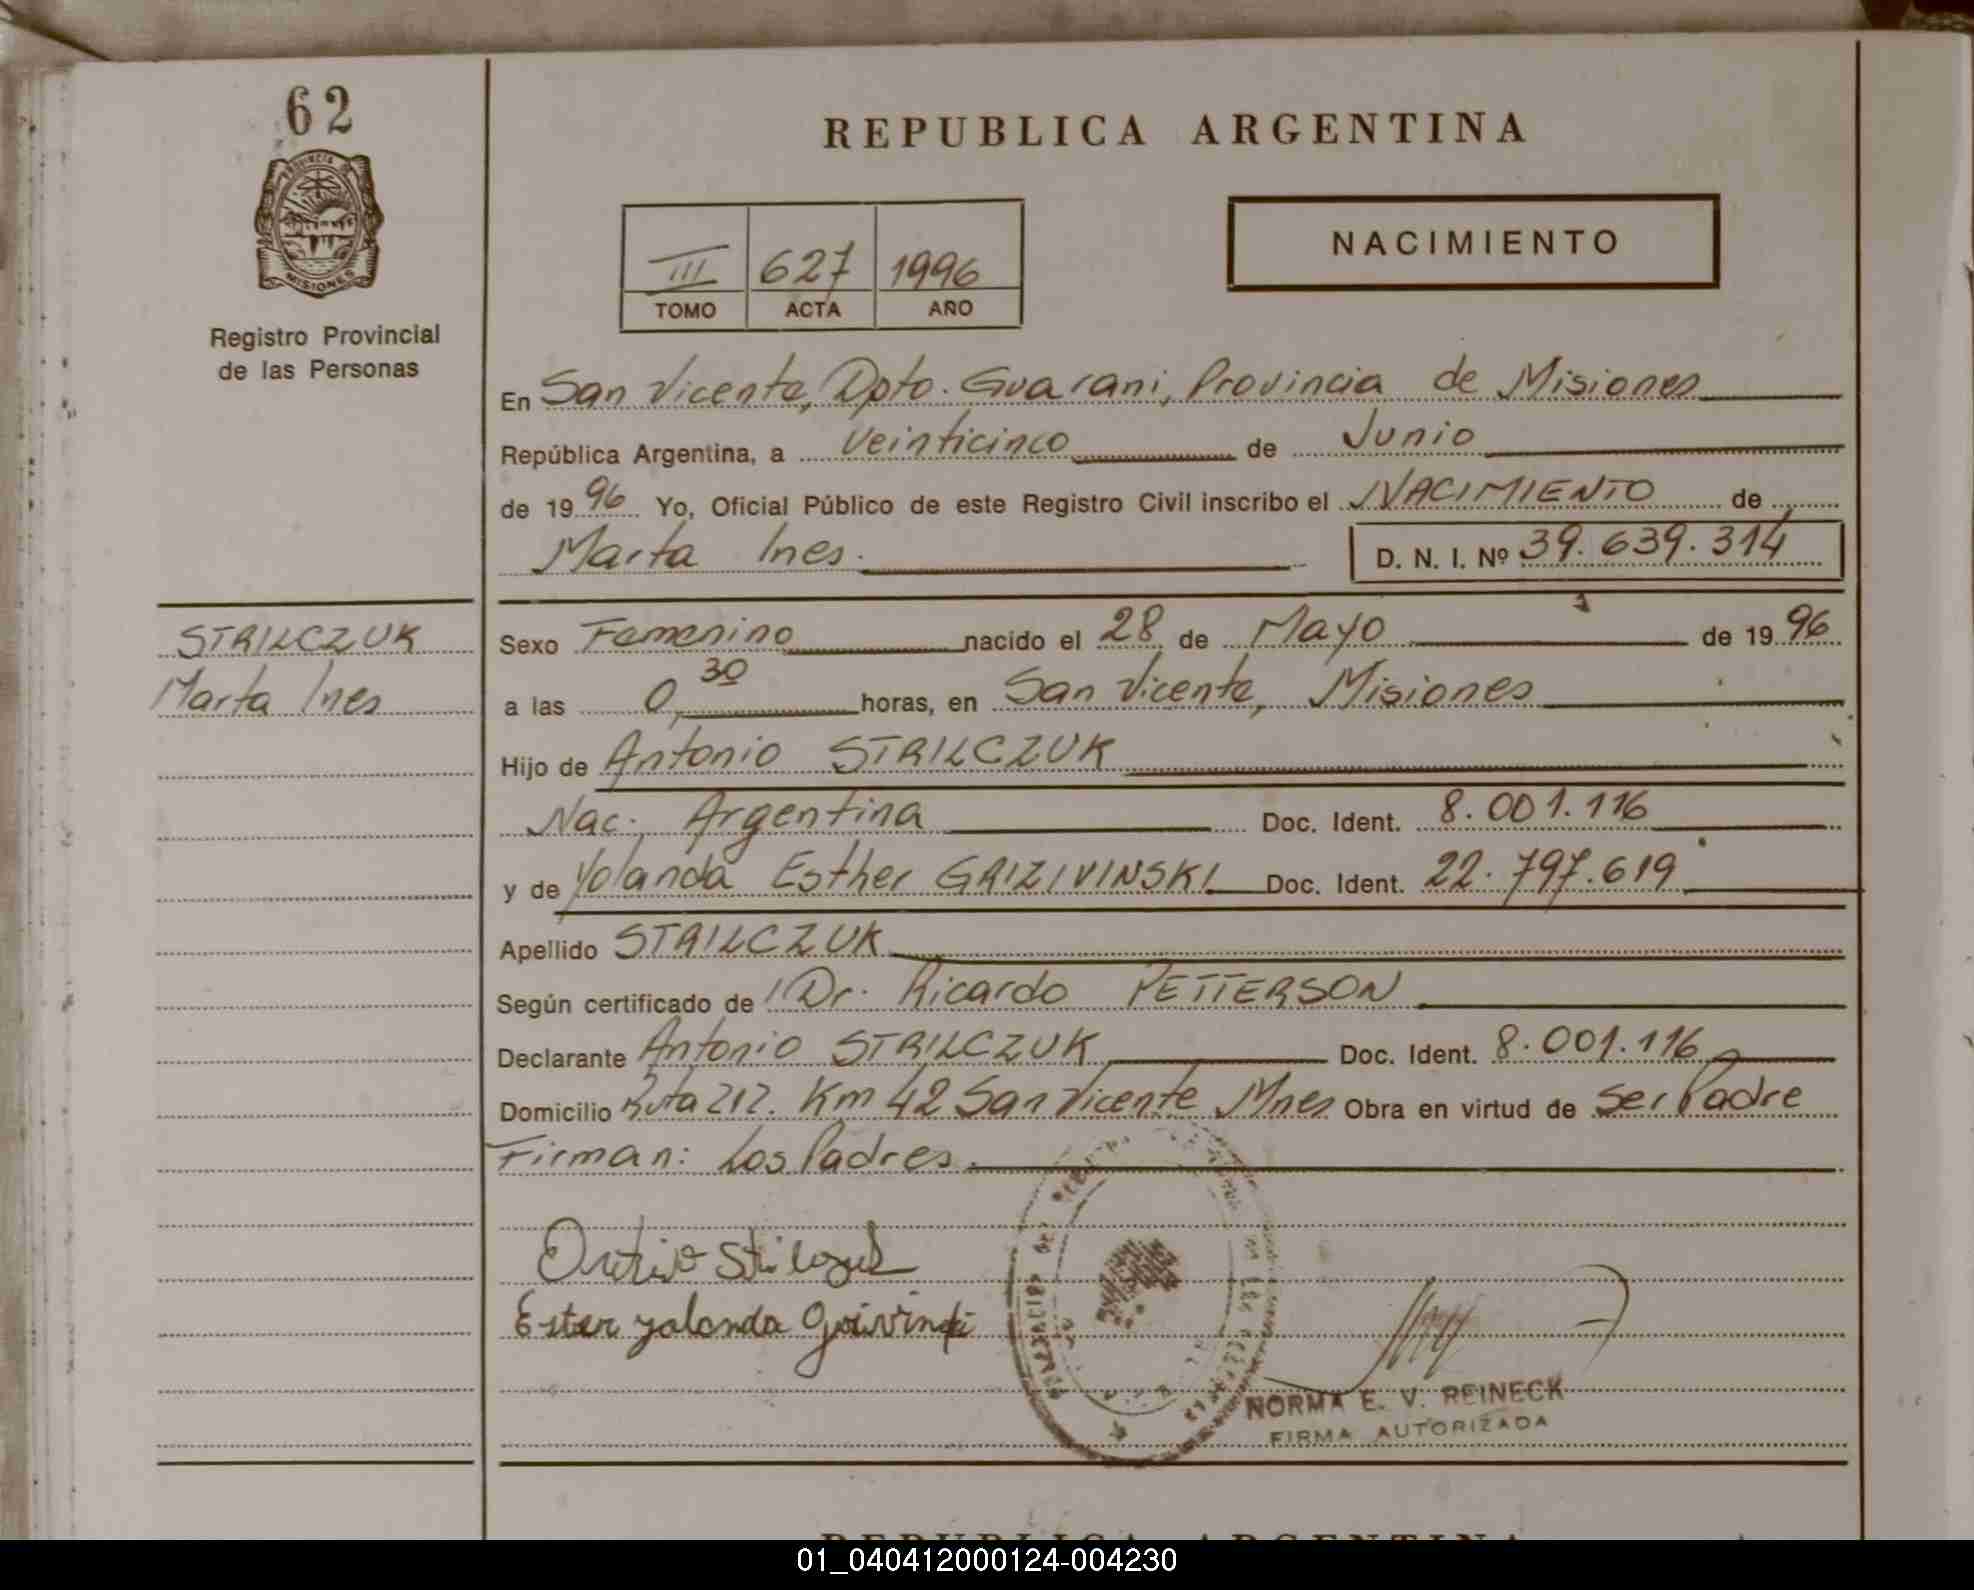 62
REPUBLICA ARGENTINA
PROVINCIA
MISIONES
NACIMIENTO
III 627 1996
TOMO ACTA AÑO
Registro Provincial
de las Personas
En San Vicente, Dpto. Guarani, Provincia de Misiones
República Argentina, a Veinticinco de Junio
de 1996 Yo, Oficial Público de este Registro Civil inscribo el NACIMIENTO de
Marta Ines. D. N. I. Nº 39.639.314
STRILCZUK
Marta Ines
Sexo Femenino nacido el 28 de Mayo de 1996
a las 0,30 horas, en San Vicente, Misiones
Hijo de Antonio STRILCZUK
Nac. Argentina Doc. Ident. 8.001.116
y de Yolanda Esther GRIZIVINSKI Doc. Ident. 22.797.619
Apellido STRILCZUK
Según certificado de Dr. Ricardo PETTERSON
Declarante Antonio STRILCZUK Doc. Ident. 8.001.116
Domicilio Ruta 212. Km 42 San Vicente Mnes Obra en virtud de Ser Padre
Firman: Los Padres.
Ester yolanda
NORMA E. V. REINECK
FIRMA AUTORIZADA
REPUBLICA ARGENTINA
01_040412000124-004230